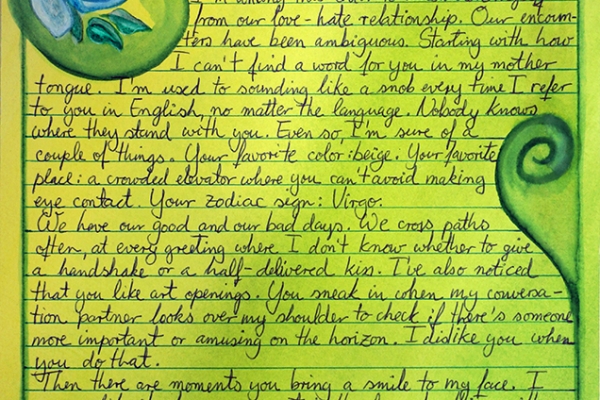 from our love-hate relationship. Our encoun-
ters have been ambiguous. Starting with how
I can't find a word for you in my mother
tongue. I'm used to sounding like a snob every time I refer
to you in English, no matter the language. Nobody knows
where they stand with you. Even so, I'm sure of a
couple of things. Your favorite color: beige. Your favorite
place: a crowded elevator where you can't avoid making
eye contact. Your zodiac sign: Virgo.
We have our good and our bad days. We cross paths
often, at every greeting where I don't know whether to give
a handshake or a half-delivered kiss. I've also noticed
that you like art openings. You sneak in when my conversa-
tion partner looks over my shoulder to check if there's someone
more important or amusing on the horizon. I dislike you when
you do that.
Then there are moments you bring a smile to my face. I